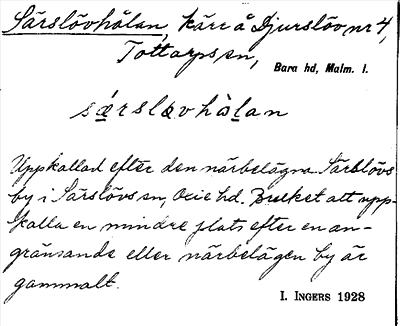 Särslövhålan, kärr å Djurslöv nr 4,
Tottarps sn,
Bara hd, Malm. l.
särslǝvhålan
Uppkallad efter den närbelägna Särslövs
by i Särslövs sn, Oxie hd. Bruket att upp-
kalla en mindre plats efter en an-
gränsande eller närbelägen by är
gammalt.
I. INGERS 1928